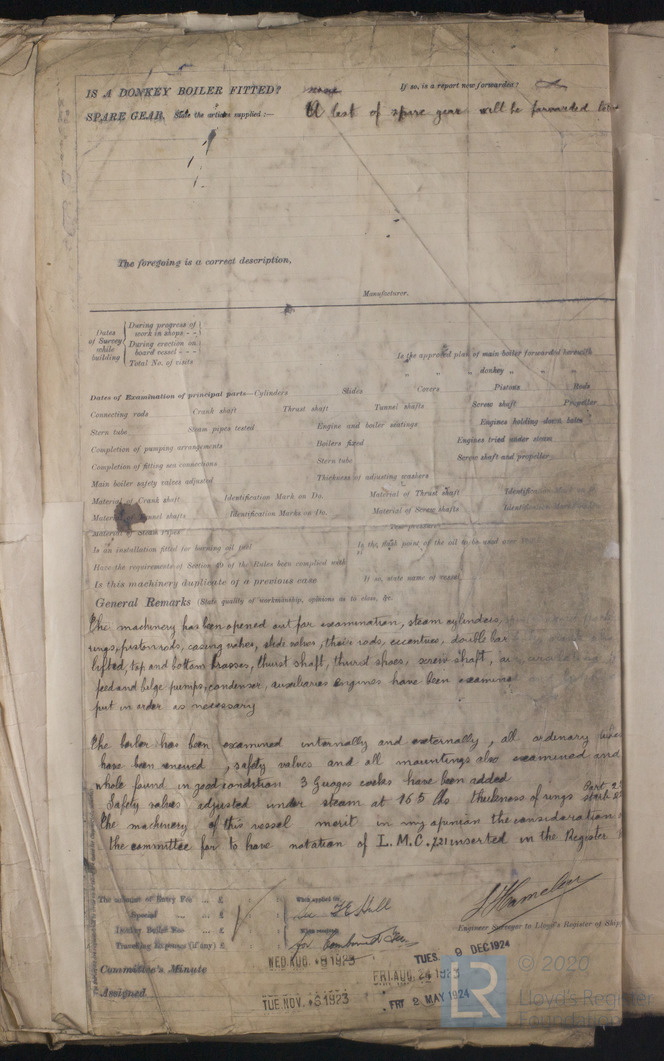 IS A DONKEY BOILER FITTED? none If so, is a report now forwarded?
SPARE GEAR. State the articles supplied:— A list of spare gear will be forwarded later
The foregoing is a correct description,
Manufacturer.
Dates of Survey while building
During progress of work in shops - -
During erection on board vessel - - -
Total No. of visits
Is the approved plan of main boiler forwarded herewith
" " donkey " "
Dates of Examination of principal parts—Cylinders Slides Covers Pistons Rods
Connecting rods Crank shaft Thrust shaft Tunnel shafts Screw shaft Propeller
Stern tube Steam pipes tested Engine and boiler seatings Engines holding down bolts
Completion of pumping arrangements Boilers fixed Engines tried under steam
Completion of fitting sea connections Stern tube Screw shaft and propeller
Main boiler safety valves adjusted Thickness of adjusting washers
Material of Crank shaft Identification Mark on Do. Material of Thrust shaft Identification Mark on
Material of Tunnel shafts Identification Marks on Do. Material of Screw shafts Identification Marks on
Material of Steam Pipes Test pressure
Is an installation fitted for burning oil fuel Is the flash point of the oil to be used over
Have the requirements of Section 49 of the Rules been complied with
Is this machinery duplicate of a previous case If so, state name of vessel
General Remarks (State quality of workmanship, opinions as to class, &c.
The machinery has been opened out for examination, steam cylinders,
rings, piston rods, casing valves, slide valves, their rods, eccentrics, double bar
lifted, top and bottom brasses, thurst shaft, thurst shoes, screw shaft,
feed and bilge pumps, condenser, auxiliaries engines have been examined
put in order as necessary
The boiler has been examined internally and externally, all ordinary
have been renewed, safety valves and all mountings also examined and
whole found in good condition 3 Guages cocks have been added
Safety valves adjusted under steam at 165 lbs thickness of rings Port
The machinery of this vessel merit in my opinion the consideration
the committee for to have notation of L.M.C. 7,21 inserted in the Register
The amount of Entry Fee ... £ : : When applied for,
Special ... £ : :
Donkey Boiler Fee ... £ : : When received,
Travelling Expenses (if any) £ : :
See F.E. Hull
for Combined Fee
Engineer Surveyor to Lloyd's Register of Ship
Committee's Minute WED. AUG. 8 1923 TUES. 9 DEC 1924
FRI. AUG. 24 1923
Assigned TUE. NOV. 6 1923 FRI. 2 MAY 1924
LR © 2020
Lloyd's Register
Foundation